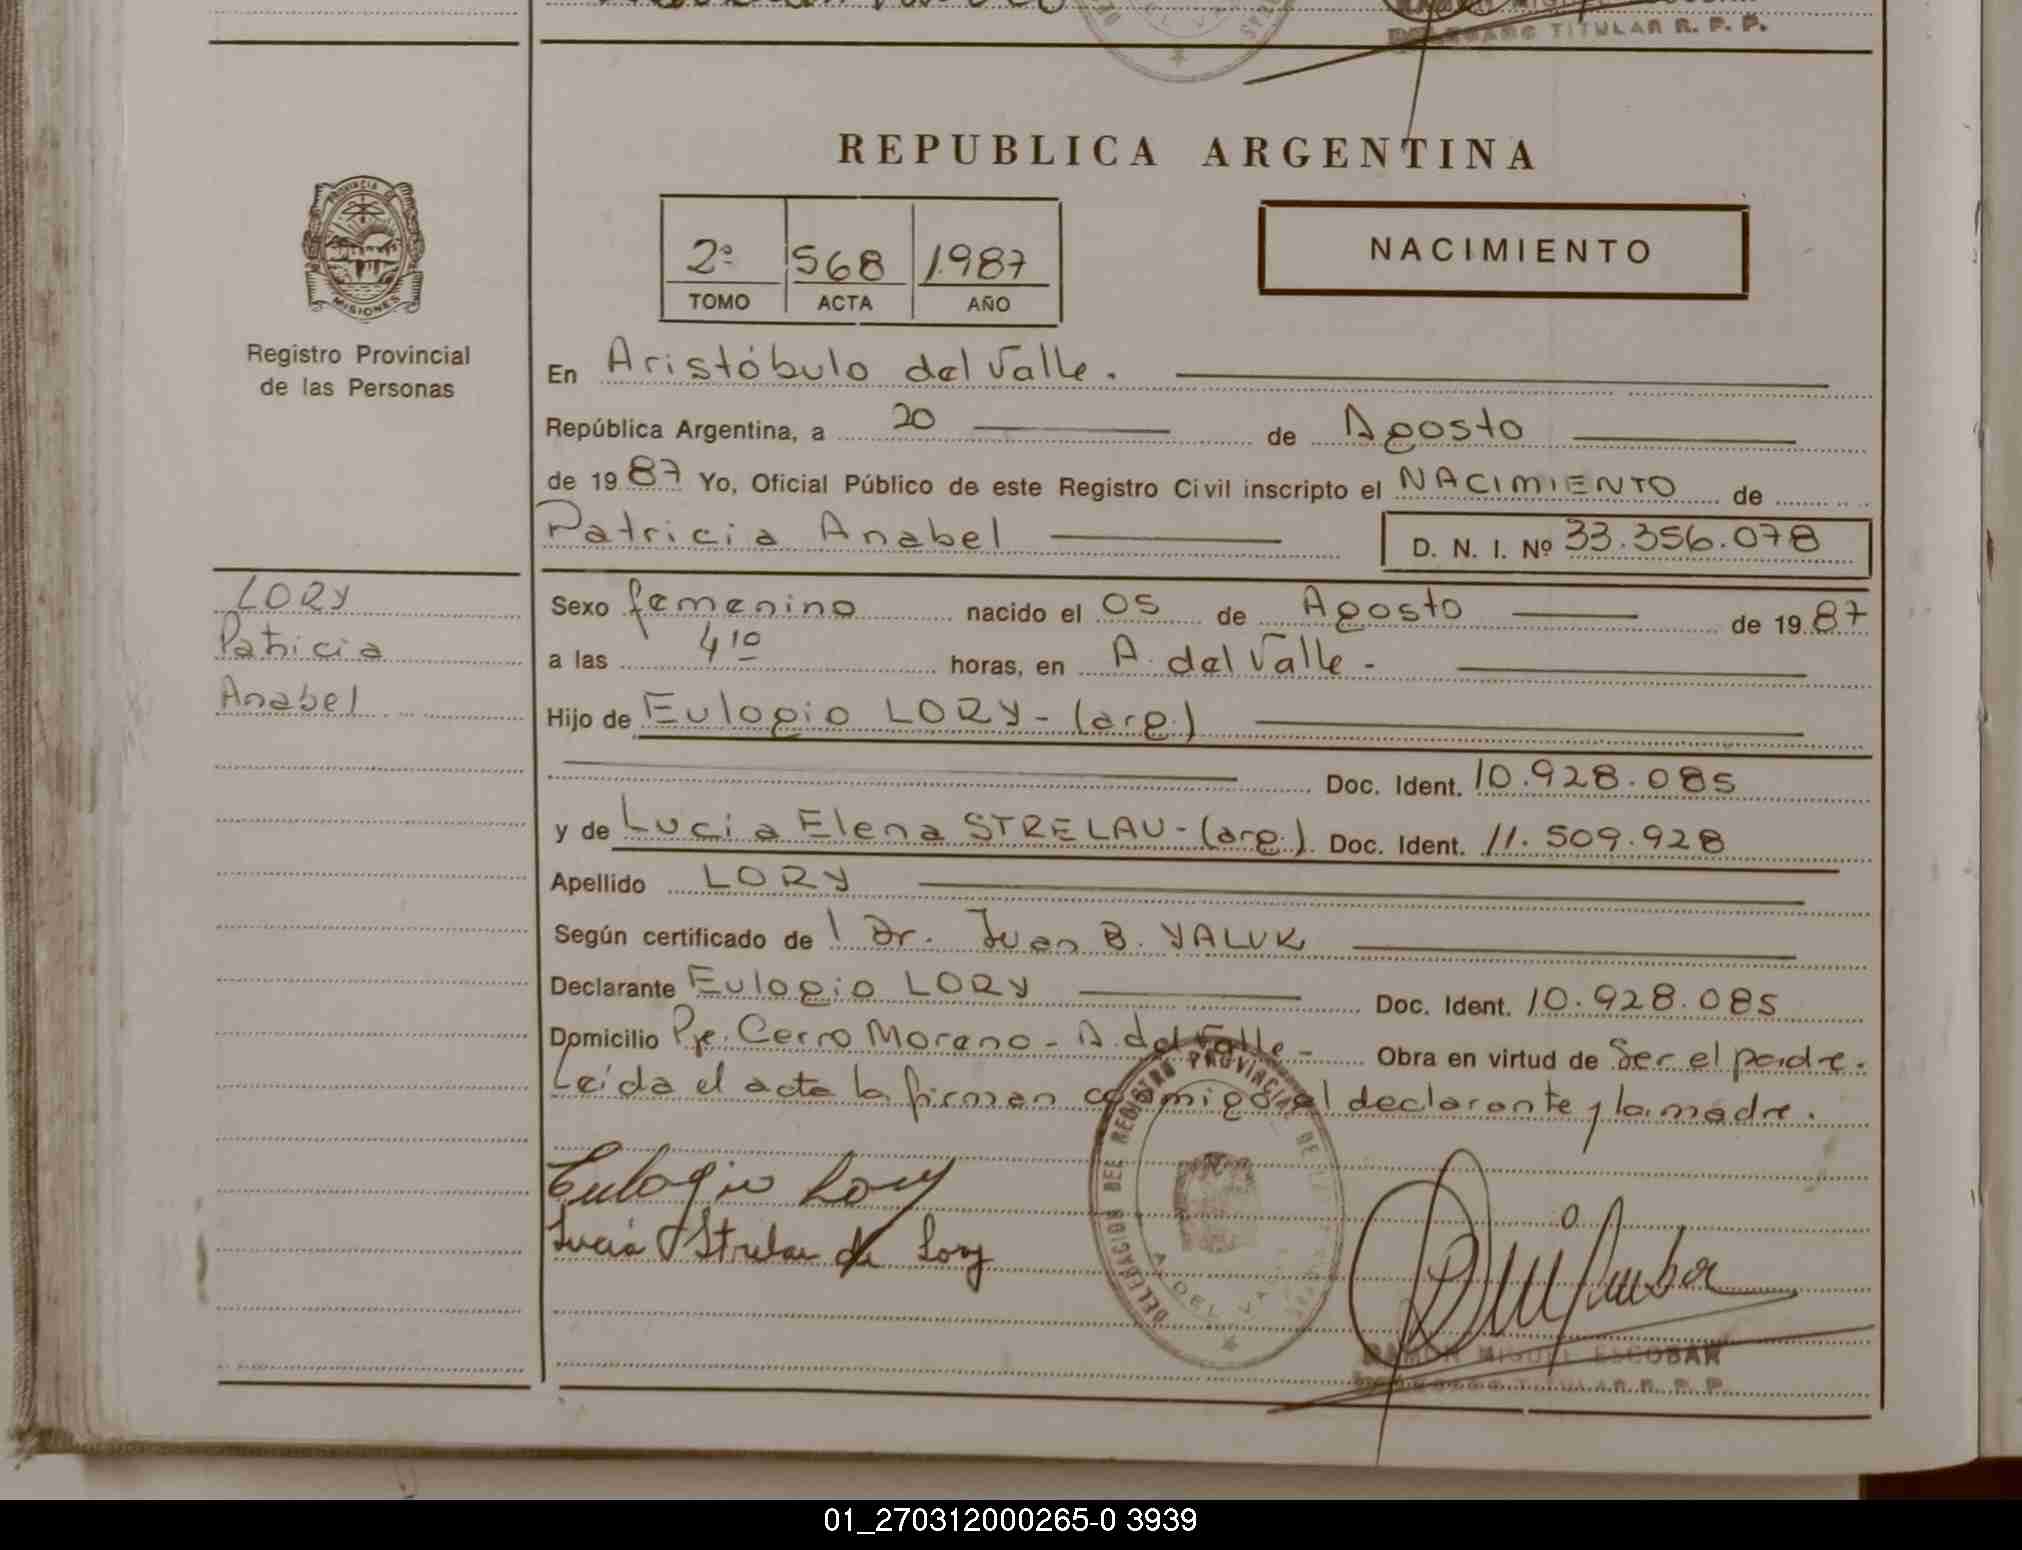 TITULAR R. P. P.
REPUBLICA ARGENTINA
PROVINCIA DE
MISIONES
Registro Provincial
de las Personas
2º 568 1.987
TOMO ACTA AÑO
NACIMIENTO
En Aristóbulo del Valle.
República Argentina, a 20 de Agosto
de 1987 Yo, Oficial Público de este Registro Civil inscripto el NACIMIENTO de
Patricia Anabel D. N. I. Nº 33.356.078
LORY
Patricia
Anabel
Sexo femenino nacido el 05 de Agosto de 1987
a las 4 10 horas, en A. del Valle -
Hijo de Eulogio LORY - (arg.)
Doc. Ident. 10.928.085
y de Lucia Elena STRELAU - (arg.) Doc. Ident. 11.509.928
Apellido LORY
Según certificado de l Dr. Juan B. YALUK
Declarante Eulogio LORY Doc. Ident. 10.928.085
Domicilio Pje. Cerro Moreno - A. del Valle - Obra en virtud de Ser el padre.
Leída el acta la firman conmigo el declarante y la madre.
Eulogio Lory
Lucia Strelau de Lory
DELEGACION DEL REGISTRO PROVINCIAL DE
A. DEL VALLE
RAMON MIGUEL ESCOBAR
TITULAR R. P. P.
01_270312000265-0 3939